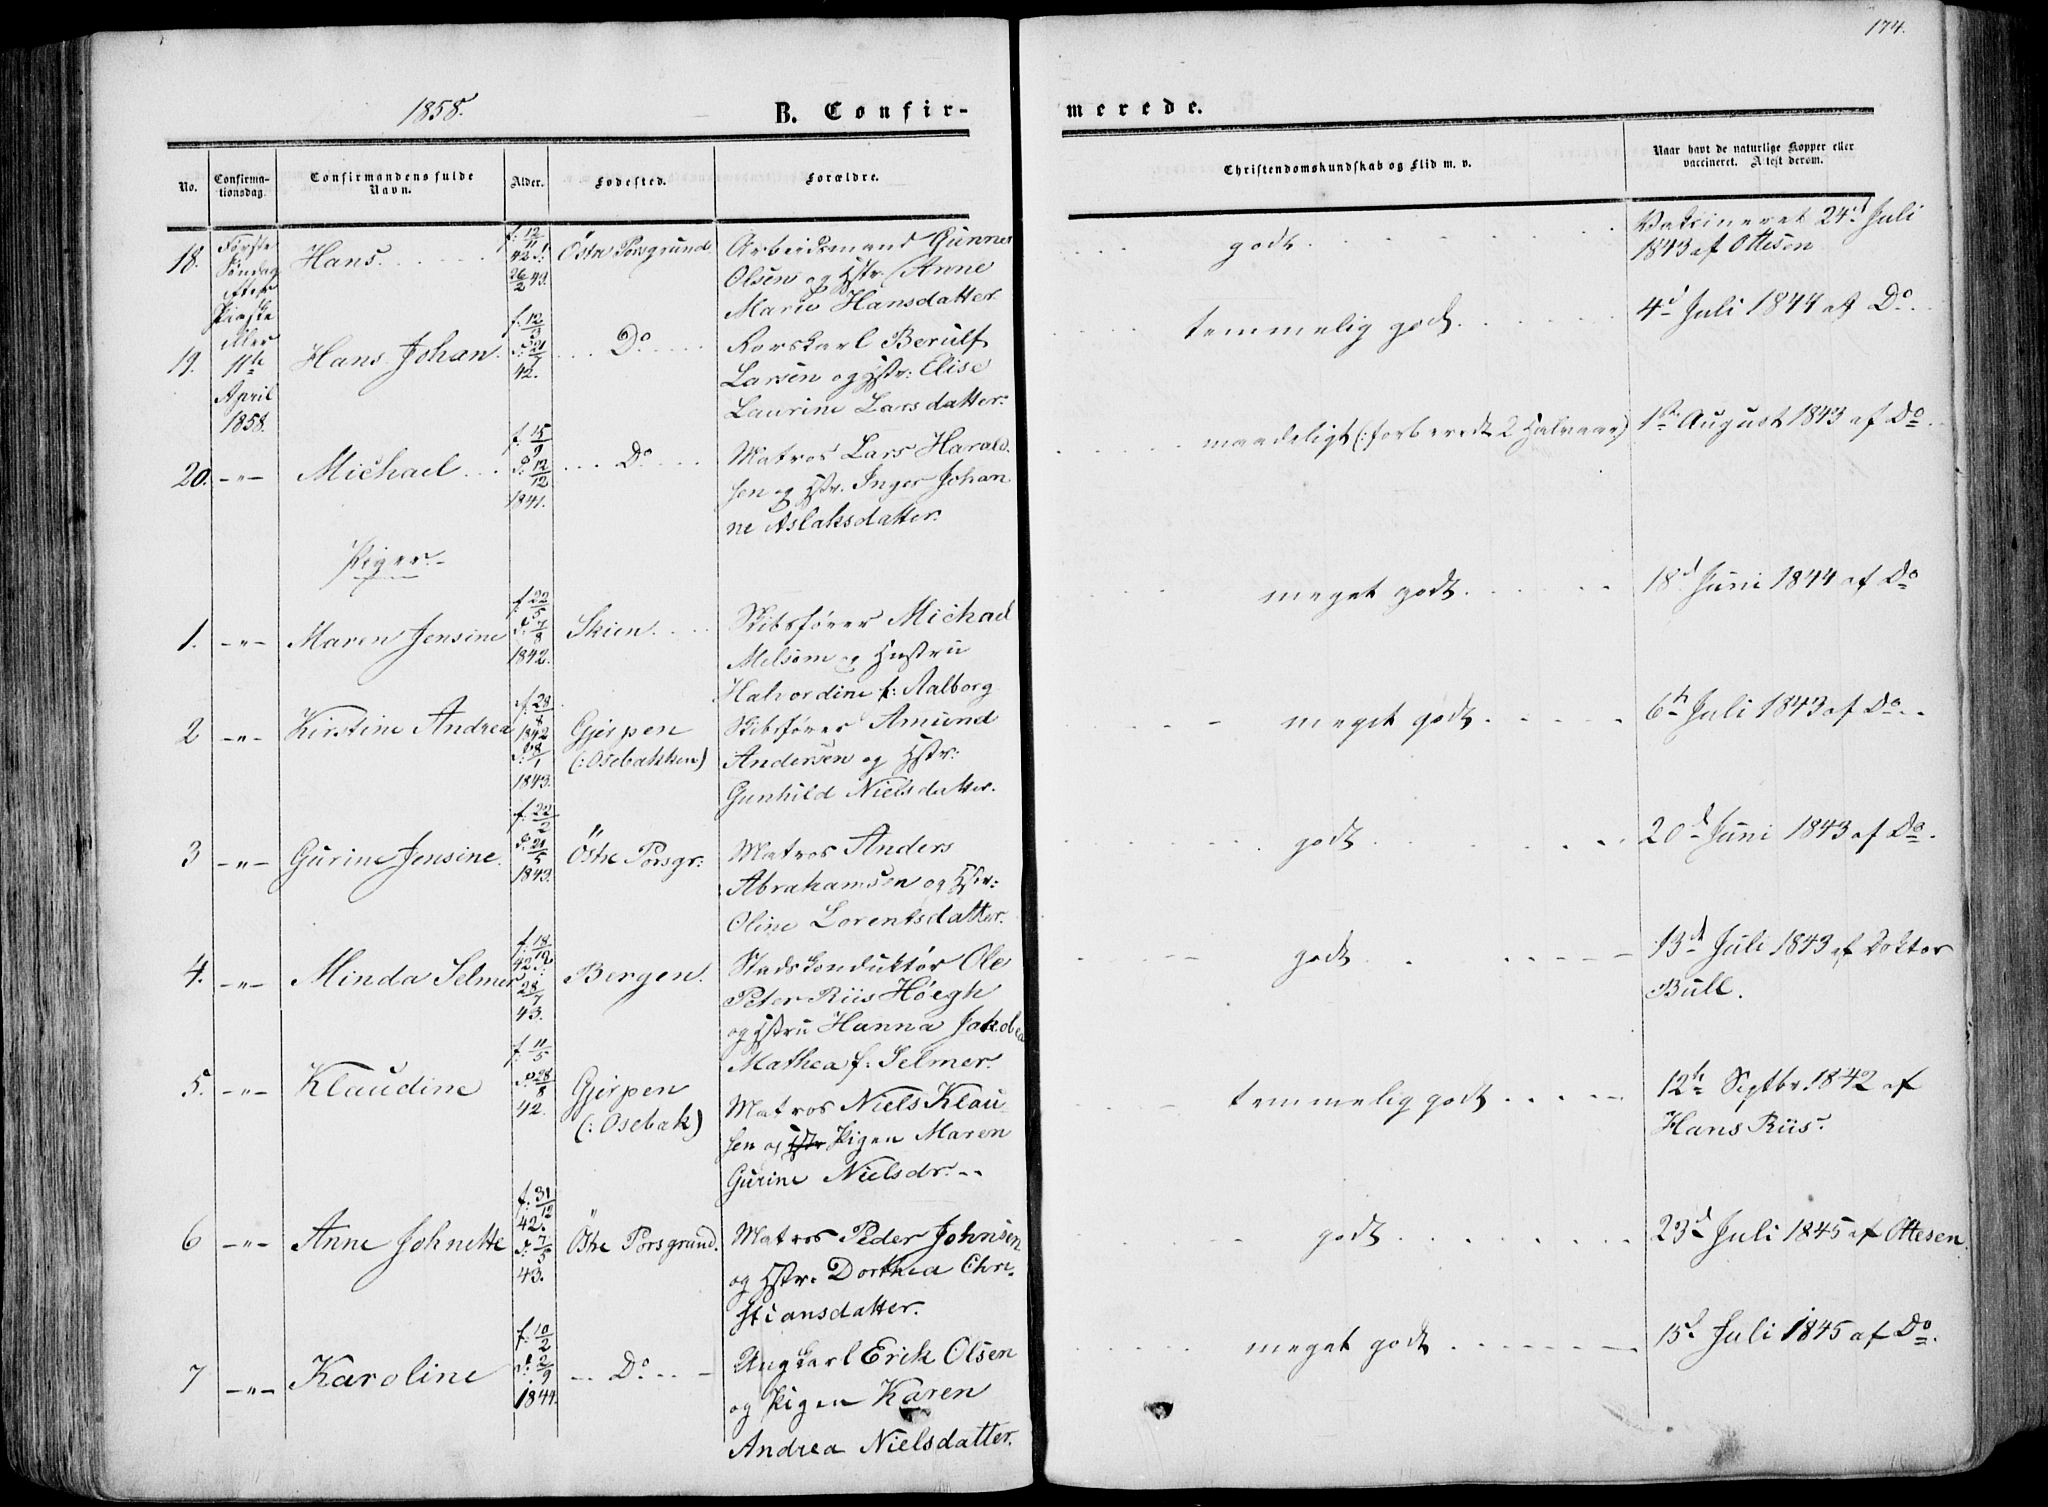 174.
1858.
B. Confir-
merede.
No.
Confirma-
tionsdag.
Confirmandens fulde
Navn.
Alder.
Fødested.
Forældre.
Christendomskundskab og Flid m. v.
Naar havt de naturlige Kopper eller
vaccineret. Attest derom.
18.
Første
Søndag
efter
Paaske
eller
11te
April
1858.
Hans.
f: 12/11
42. d:
26/2 43.
Östre Porsgrund.
Arbeidsmand Gunner
Olsen og Hstr. Anne
Marie Hansdatter.
godt
Vakcineret 24d Juli
1843 af Ottesen
19.
Hans Johan.
f: 12/3
d: 21/7
42.
Do
Rorskarl Berulf
Larsen og Hstr: Elise
Laurine Larsdatter.
temmelig godt
4d Juli 1844 af Do.
20. -"-
Michael
f. 15/9
d: 12/12
1841.
Do
Matros Lars Harald-
sen og Hstr. Inger Johan
ne Aslaksdatter.
maadeligt (: forberedt 2 Halvaar)
1ste August 1843 af Do
Piger.
1. -"-
Maren Jensine
f. 22/5
d: 7/8
1842.
Skien.
Skibsfører Michael
Melsom og Hustru
Halvordine f: Aalborg
meget godt
18d Juni 1844 af Do
2 -"-
Kirstine Andrea
f. 29/8
1842
d: 8/1
1843.
Gjerpen
(: Osebakken)
Skibsfører Amund
Andersen og Hstr:
Gunhild Nielsdatter.
meget godt
6te Juli 1843 af Do.
3 -"-
Gurine Jensine.
f. 22/2
d: 21/5
1843.
Östre Porsgr:
Matros Anders
Abrahamsen og Hstr:
Oline Lorentsdatter.
godt
20d Juni 1843 af Do.
4. -"-
Minda Selmer
f. 18/12
42 d:
28/7
43.
Bergen.
Stadskonduktör Ole
Peter Riis Höegh
og Hstru Hanna Jakobea
Mathea f: Selmer.
godt
13d Juli 1843 af Doktor
Bull.
5. -"-
Klaudine
f. 11/5
d: 28/8
42.
Gjerpen
(: Osebak)
Matros Niels Klau-
sen og Hstr Pigen Maren
Gurine Nielsdr.
temmelig godt
12te Septbr. 1842 af
Hans Riis.
6 -"-
Anne Johnette
f. 31/12
42.
d: 7/5
43.
Östre Porsgrund.
Matros Peder Johnsen
og Hstr. Dorthea Chri-
stiansdatter.
godt
23d Juli 1845 af Ottesen.
7 -"-
Karoline
f. 10/2
d: 2/9
1844.
Do
Ungkarl Erik Olsen
og Pigen Karen
Andrea Nielsdatter.
meget godt
15d Juli 1845 af Do.